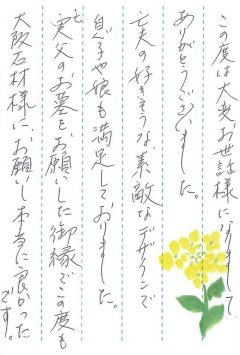 この度は大変お世話様になりまして
ありがとうございました。
亡夫の好きそうな素敵なデザインで
息子や娘も満足しておりました。
実父のお墓も、お願いした御縁でこの度も
大阪石材様に、お願いし本当に良かった
です。